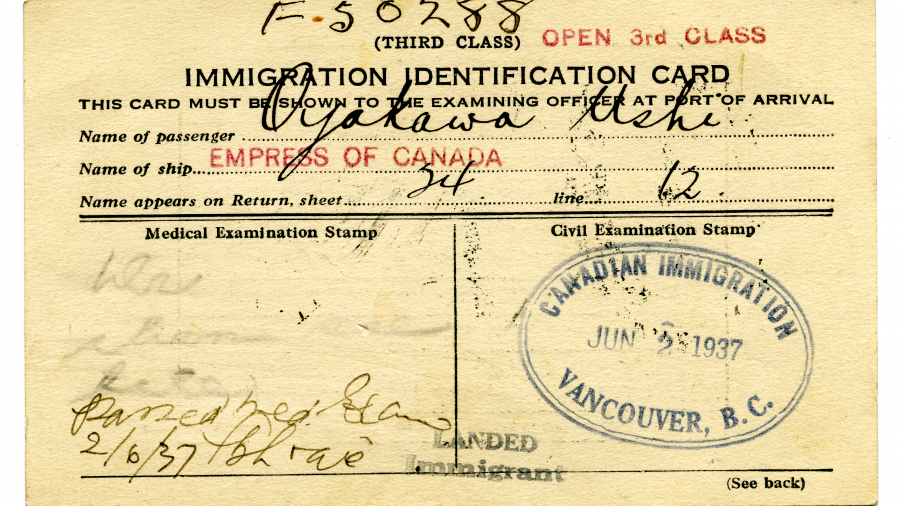 F-50288
(THIRD CLASS) OPEN 3rd CLASS
IMMIGRATION IDENTIFICATION CARD
THIS CARD MUST BE SHOWN TO THE EXAMINING OFFICER AT PORT OF ARRIVAL
Name of passenger Oyakawa Ushi
Name of ship EMPRESS OF CANADA
Name appears on Return, sheet 34 line 12
Medical Examination Stamp
Passed Med Exam
2/6/37
Civil Examination Stamp
CANADIAN IMMIGRATION
JUN 2 1937
VANCOUVER, B.C.
LANDED
Immigrant
(See back)